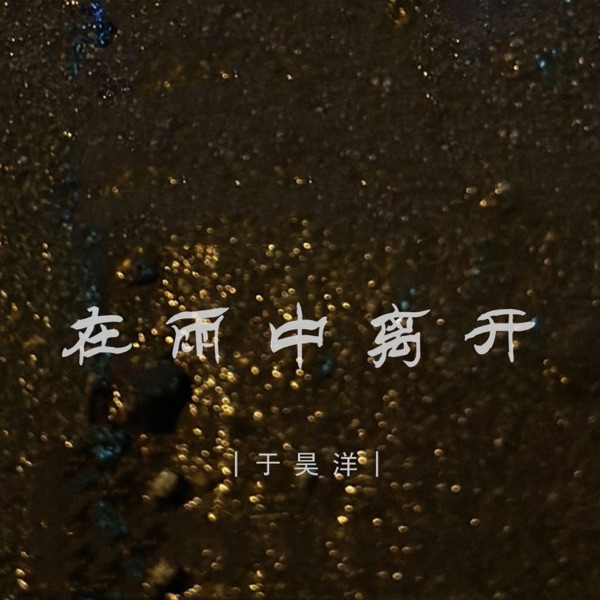 在雨中离开
|于昊洋|